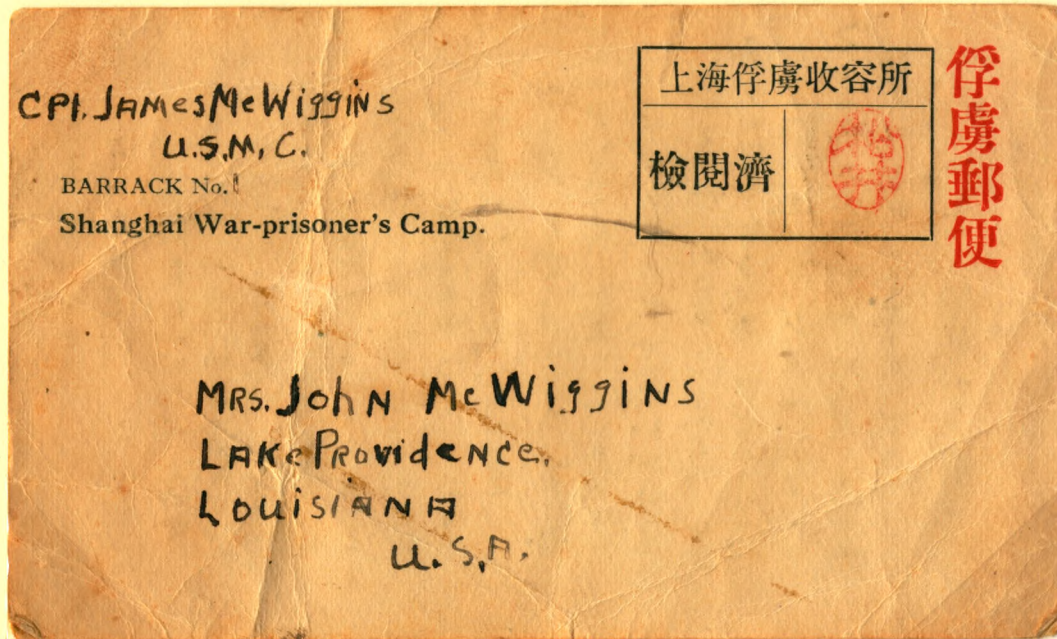 CPl. JAMes Mc Wiggins
U.S.M.C.
BARRACK No. 1
Shanghai War-prisoner's Camp.
上海俘虜收容所
檢閱濟
俘虜郵便
MRS. John Mc Wiggins
LAKe PRovideNce.
LouisiANA
U.S.A.